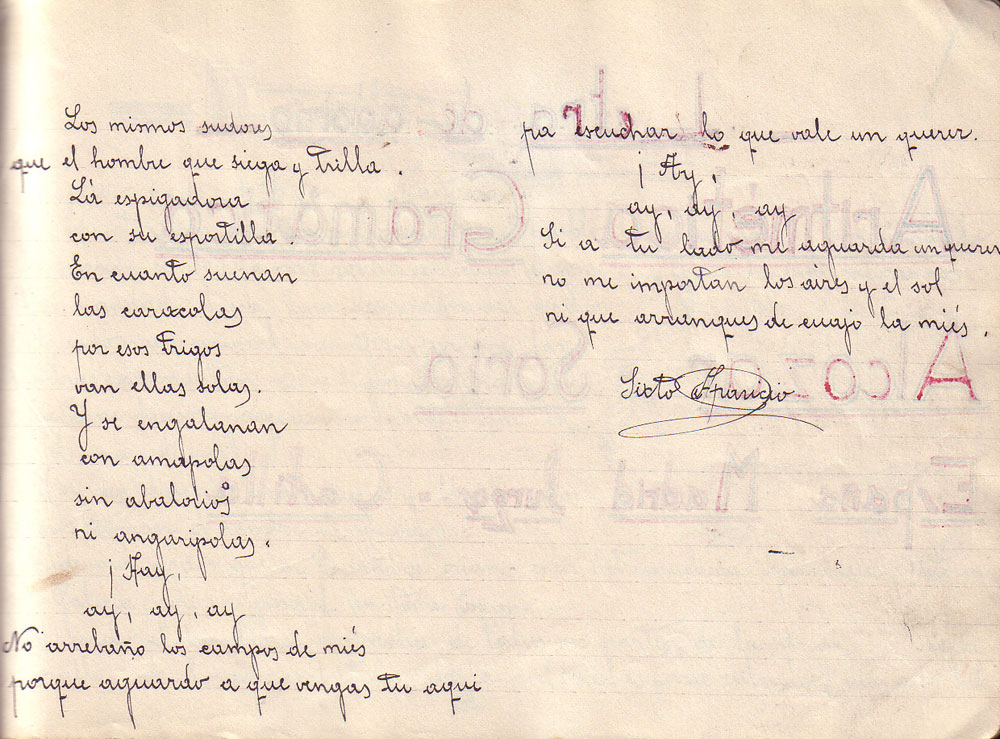 Los mismos sudores
que el hombre que siega y trilla.
La espigadora
con su esportilla.
En cuanto suenan
las caracolas
por esos trigos
van ellas solas.
Y se engalanan
con amapolas
sin abalorios
ni angaripolas.
¡Hay,
ay, ay, ay
No arrebaño los campos de miés
porque aguardo a que vengas tu aqui
pa escuchar lo que vale un querer.
¡Ay,
ay, ay, ay
Si a tu lado me aguarda un querer
no me importan los aires y el sol
ni que arranques de cuajo la miés.
Sixto Aparicio
Letra de adorno
Aritmética Gramática
Alcozar Soria
España Madrid Burgos